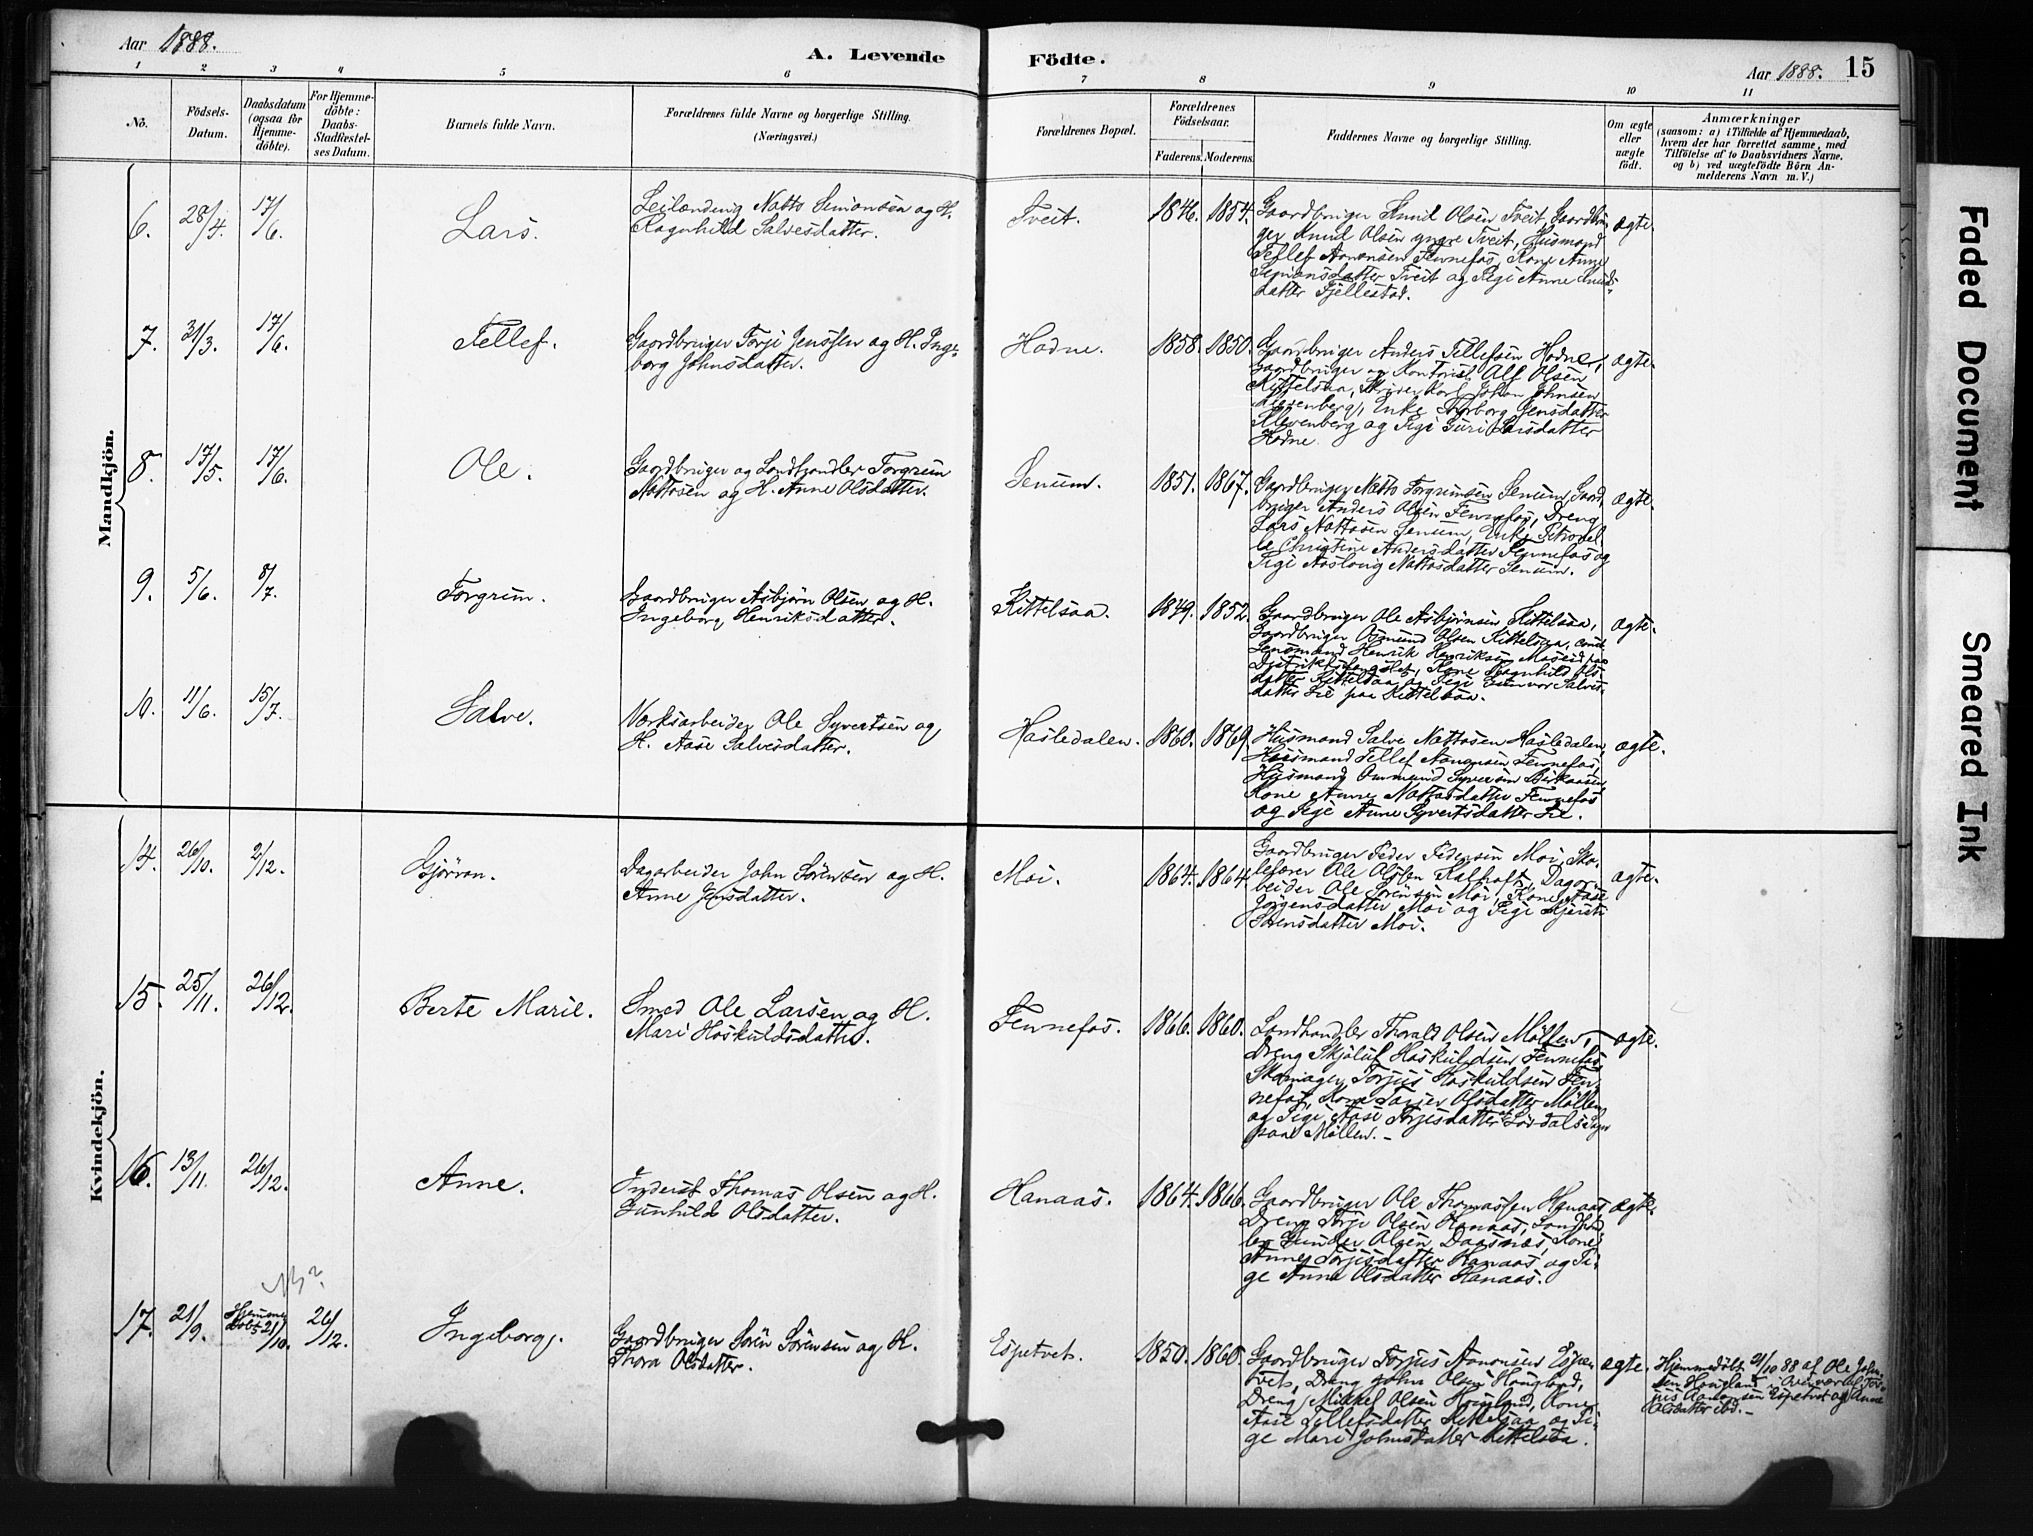 Aar 1888.
A. Levende Födte.
Aar 1888. 15
1 2 3 4 5 6 7 8 9 10 11
No.
Födsels-Datum.
Daabsdatum (ogsaa for Hjemme-döbte).
For Hjemme-döbte: Daabs-Stadfæstel-ses Datum.
Barnets fulde Navn.
Forældrenes fulde Navne og borgerlige Stilling.
(Næringsvei.)
Forældrenes Bopæl.
Forældrenes Födselsaar.
Faderens. Moderens.
Faddernes Navne og borgerlige Stilling.
Om ægte eller uægte født.
Anmærkninger
(saasom: a) i Tilfælde af Hjemmedaab,
hvem der har forrettet samme, med
Tilföielse af to Daabsvidners Navne,
og b) ved uægtefödte Börn An-
melderens Navn m. V.)
Mandkjön.
6. 28/4. 17/6. Lars.
Leilænding Natto Simonsen og H.
Ragnhild Salvesdatter.
Tveit. 1846. 1854.
Gaardbruger Knud Olsen Tveit, Gaardbru-
ger Knud Olsen yngre Tveit, Husmand
Tellef Aanonsen Fennefos, Kone Anne
Simonsdatter Tveit og Pige Anne Knuds-
datter Fjellestad.
ægte.
7. 31/3. 17/6. Tellef.
Gaardbruger Torje Jenssen og H. Inge-
borg Johnsdatter.
Hodne. 1858. 1850.
Gaardbruger Anders Tellefsen Hodne,
Gaardbruger og Kontorist Alf Olsen
Kittelsaa, Skriver Karl Johan Johnsen
Klevenberg, Enke Torborg Jensdatter
Klevenberg og Pige Guri Larsdatter
Hodne.
ægte.
8. 17/5. 17/6. Ole.
Gaardbruger og Landhandler Torgrim
Nattosen og H. Anne Olsdatter.
Senum. 1851. 1867.
Gaardbruger Natto Torgrimsen Senum, Gaard-
bruger Anders Olsen Fennefos, Dreng
Lars Nattosen Senum, Enke Petronel-
le Christine Andersdatter Fennefos og
Pige Aaslaug Nattosdatter Senum.
ægte.
9. 5/6. 8/7. Torgrim.
Gaardbruger Asbjörn Olsen og H.
Ingeborg Henriksdatter.
Kittelsaa. 1849. 1852.
Gaardbruger Ole Asbjörnsen Kittelsaa,
Gaardbruger Osmund Olsen Kittelsaa, const.
Lensmand Henrik Henriksen Moseid paa
Distriktsfængslet, Kone Ragnhild Ols-
datter Kittelsaa og Pige Gunvor Salves-
datter Lie paa Kittelsaa.
ægte.
10. 11/6. 15/7. Salve.
Værksarbeider Ole Syvertsen og
H. Aase Salvesdatter.
Hasledalen. 1860. 1869.
Husmand Salve Nattosen Hasledalen,
Husmand Tellef Aanonsen Fennefos,
Husmand Ommund Syversen Birkaasen,
Kone Anne Nattosdatter Fennefos
og Pige Anne Syvertsdatter Lie.
ægte.
Kvindekjön.
14. 26/10. 2/12. Gjörron.
Dagarbeider John Sörensen og H.
Anne Jensdatter.
Moi. 1864. 1864.
Gaardbruger Peder Pedersen Moi, Sko-
lelærer Ole Olsen Kalhoft, Dagar-
beider Ole Sörensen Moi, Kone Aase
Jörgensdatter Moi og Pige Kjersti
Sörensdatter Moi.
ægte.
15. 25/11. 26/12. Berte Marie.
Smed Ole Larsen og H.
Mari Höskuldsdatter.
Fennefos. 1866. 1860.
Landhandler Thorald Olsen Möllen,
Dreng Skjöluf Höskuldsen Fennefos,
Skomager Torjus Höskuldsen Fen-
nefos, Kone Torjer Olsdatter Möllen
og Pige Aase Torjesdatter
paa Möllen.–
ægte.
16. 13/11. 26/12. Anne.
Inderst Thomas Olsen og H.
Gunhild Olsdatter.
Hanaas. 1864. 1866.
Gaardbruger Ole Thomassen Hanaas,
Dreng Torje Olsen Hanaas, Landhand-
ler Gunder Olsen Daasnes, Kone
Anne Torjesdatter Hanaas og Pi-
ge Anne Olsdatter Hanaas.
ægte.
17. 21/9. Hjemme-döbt 21/10. 26/12. Ingeborg.
Gaardbruger Sören Sörensen og H.
Thora Olsdatter.
Espetvet. 1850. 1860.
Gaardbruger Torjus Aanonsen Espe-
tvet, Dreng John Olsen Haugland,
Dreng Mikkel Olsen Haugland, Kone
Aase Tellefsdatter Kittelsaa og Pi-
ge Mari Johnsdatter Kittelsaa.
ægte.
Hjemmedöbt 21/10 88 af Ole John-
sen Haugland i Overvær af Tor-
jus Aanonsen Espetvet og Anne
Olsdatter ibd.–
Faded Document
Smeared Ink